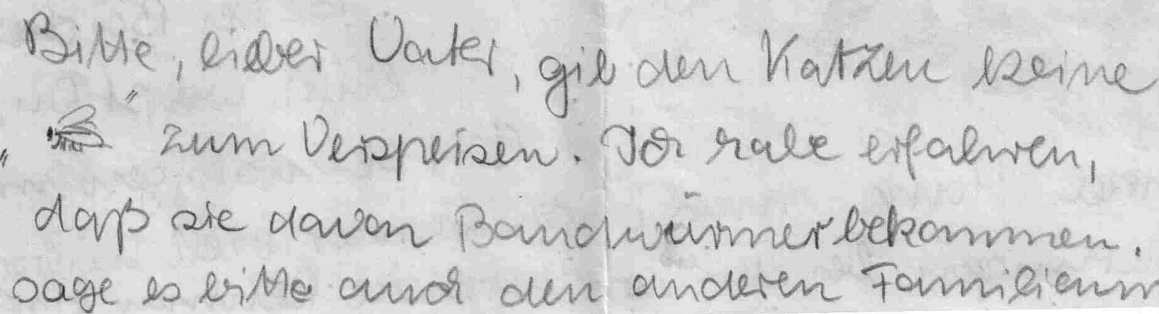 Bitte, lieber Vater, gib den Katzen keine
„ “ zum Verspeisen. Ich habe erfahren,
daß sie davon Bandwürmer bekommen.
Sage es bitte auch den anderen